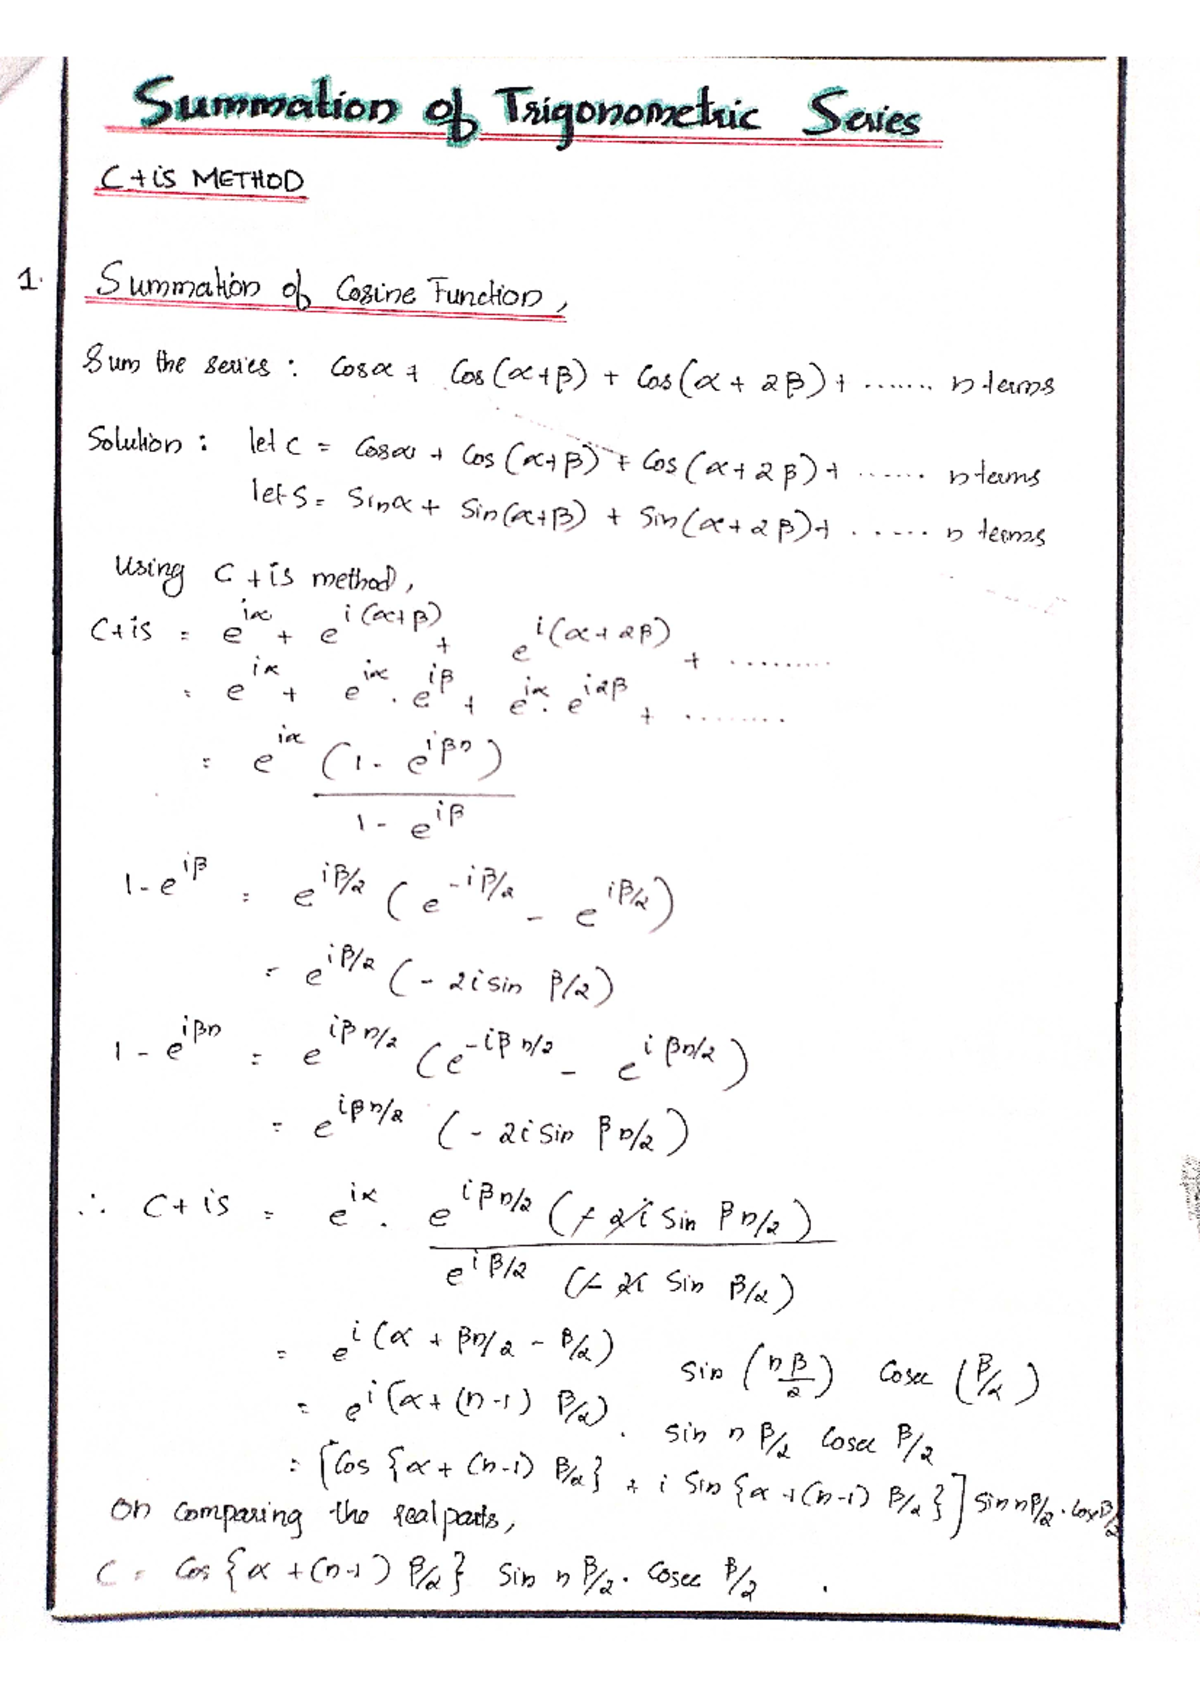 Summation of Trigonometric Series
C+is METHOD
1. Summation of Cosine Function,
Sum the series : Cosα + Cos(α+β) + Cos(α + 2β) + ....... n terms
Solution : let C = Cosα + Cos(α+β) + Cos(α+2β) + ....... n terms
let S = Sinα + Sin(α+β) + Sin(α+2β) + ...... n terms
Using C + is method,
C+is = e^{iα} + e^{i(α+β)} + e^{i(α+2β)} + .........
= e^{iα} + e^{iα} . e^{iβ} + e^{iα} . e^{i2β} + ........
= e^{iα} (1 - e^{iβn})
1 - e^{iβ}
1 - e^{iβ} = e^{iβ/2} (e^{-iβ/2} - e^{iβ/2})
= e^{iβ/2} (- 2i sin β/2)
1 - e^{iβn} = e^{iβn/2} (e^{-iβn/2} - e^{iβn/2})
= e^{iβn/2} (- 2i Sin βn/2)
∴ C + is = e^{iα} . e^{iβn/2} (- 2i Sin βn/2)
e^{iβ/2} (- 2i Sin β/2)
= e^{i(α + βn/2 - β/2)} Sin (nβ/2) Cosec (β/2)
= e^{i(α + (n-1) β/2)} . Sin n β/2 Cosec β/2
= [Cos {α + (n-1) β/2} + i Sin {α + (n-1) β/2}] Sin nβ/2 .
On comparing the real parts,
C = Cos {α + (n-1) β/2} Sin n β/2 . Cosec β/2 .